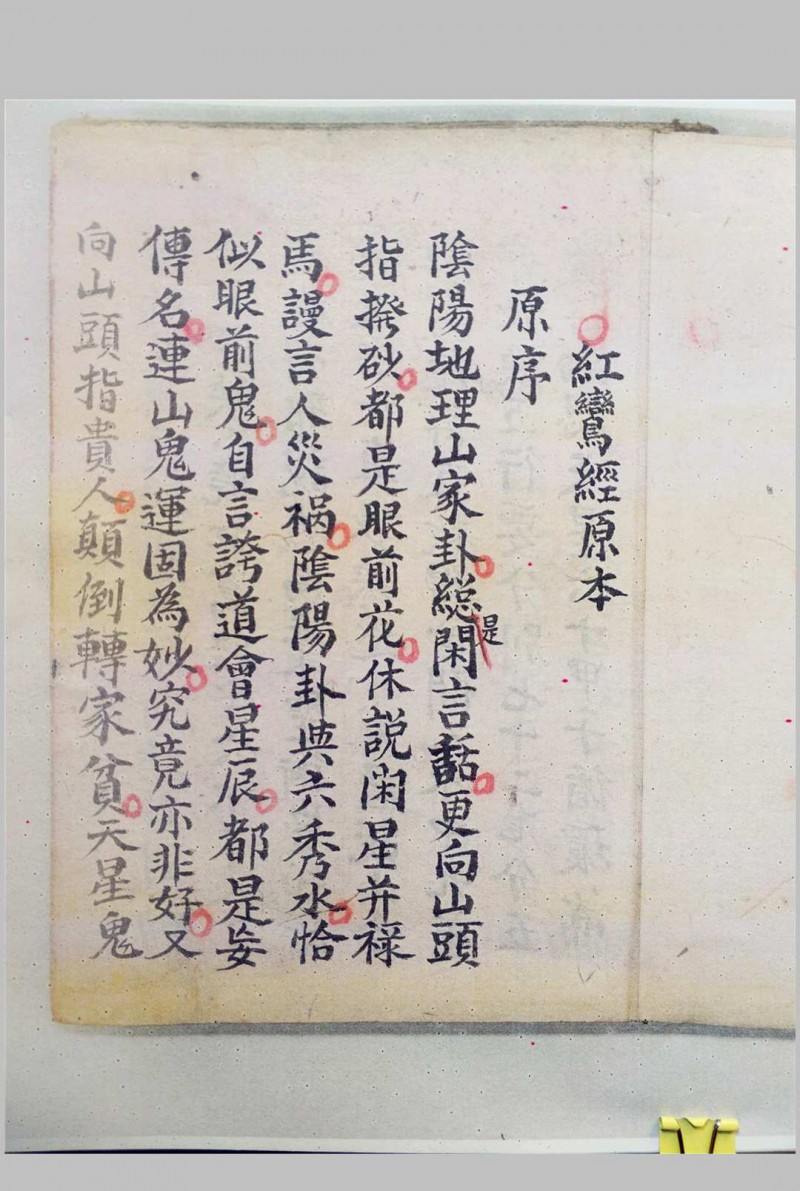 紅鸞經原本
原序
陰陽地理山家卦總是閑言話更向山頭
指撥砂都是眼前花休説閑星并禄
馬謾言人災禍陰陽卦與六秀水恰
似眼前鬼自言誇道會星辰都是妄
傳名連山鬼運固為妙究竟亦非好又
向山頭指貴人顛倒轉家貧天星鬼